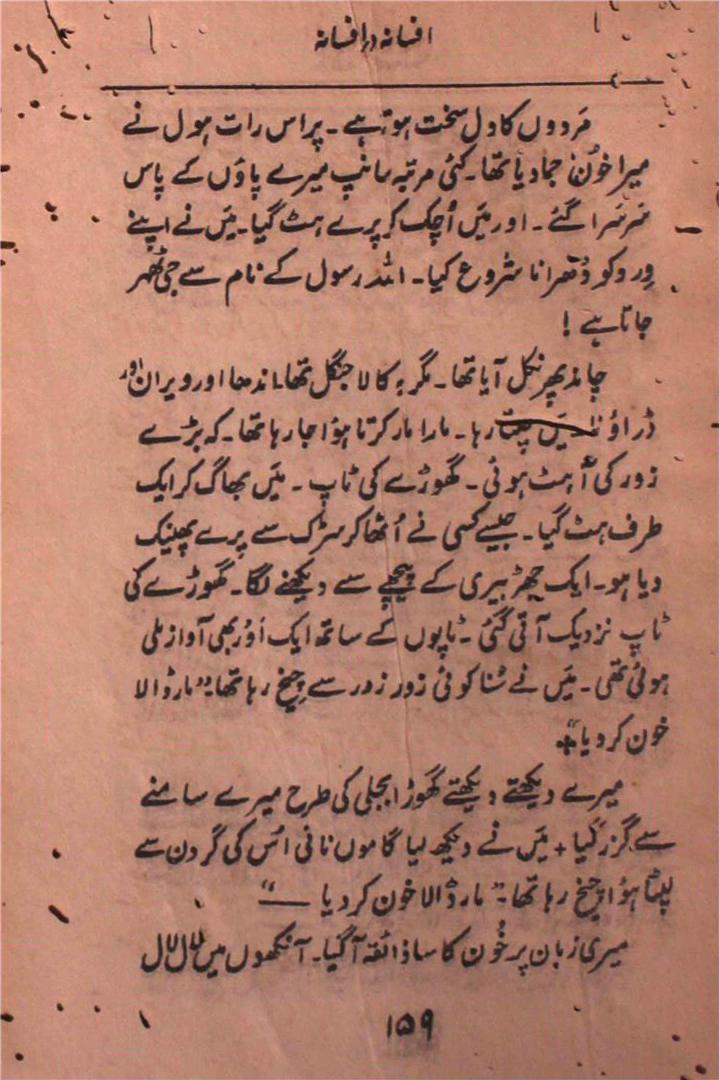 افسانہ در افسانہ
مردوں کا دل سخت ہوتا ہے۔ پر اس رات ہول نے
میرا خُون جما دیا تھا۔ کئی مرتبہ سانپ میرے پاؤں کے پاس
سَرسَرا گئے۔ اور مَیں اُچک کر پرے ہٹ گیا۔ مَیں نے اپنے
وِرد کو دُھرانا شروع کیا۔ اللہ رسول کے نام سے جی ٹھہر
جاتا ہے!
چاند پھر نکل آیا تھا۔ مگر یہ کالا جنگل تھا۔ اندھا اور ویران اور
ڈراؤنا مَیں چلتا رہا۔ مارا مار کرتا ہؤا جا رہا تھا۔ کہ بڑے
زور کی آہٹ ہوئی۔ گھوڑے کی ٹاپ۔ مَیں بھاگ کر ایک
طرف ہٹ گیا۔ جیسے کسی نے اُٹھا کر سڑک سے پرے پھینک
دیا ہو۔ ایک جھڑبیری کے پیچھے سے دیکھنے لگا۔ گھوڑے کی
ٹاپ نزدیک آتی گئی۔ ٹاپوں کے ساتھ ایک اَور بھی آواز ملی
ہوئی تھی۔ مَیں نے سُنا کوئی زور زور سے چیخ رہا تھا: "مار ڈالا
خون کر دیا"+
میرے دیکھتے دیکھتے گھوڑا بجلی کی طرح میرے سامنے
سے گزر گیا + مَیں نے دیکھ لیا گاموں نائی اُس کی گردن سے
لپٹا ہؤا چیخ رہا تھا: "مار ڈالا خون کر دیا ——"
میری زبان پر خُون کا سا ذائقہ آگیا۔ آنکھوں میں لال لال
۱۵۹